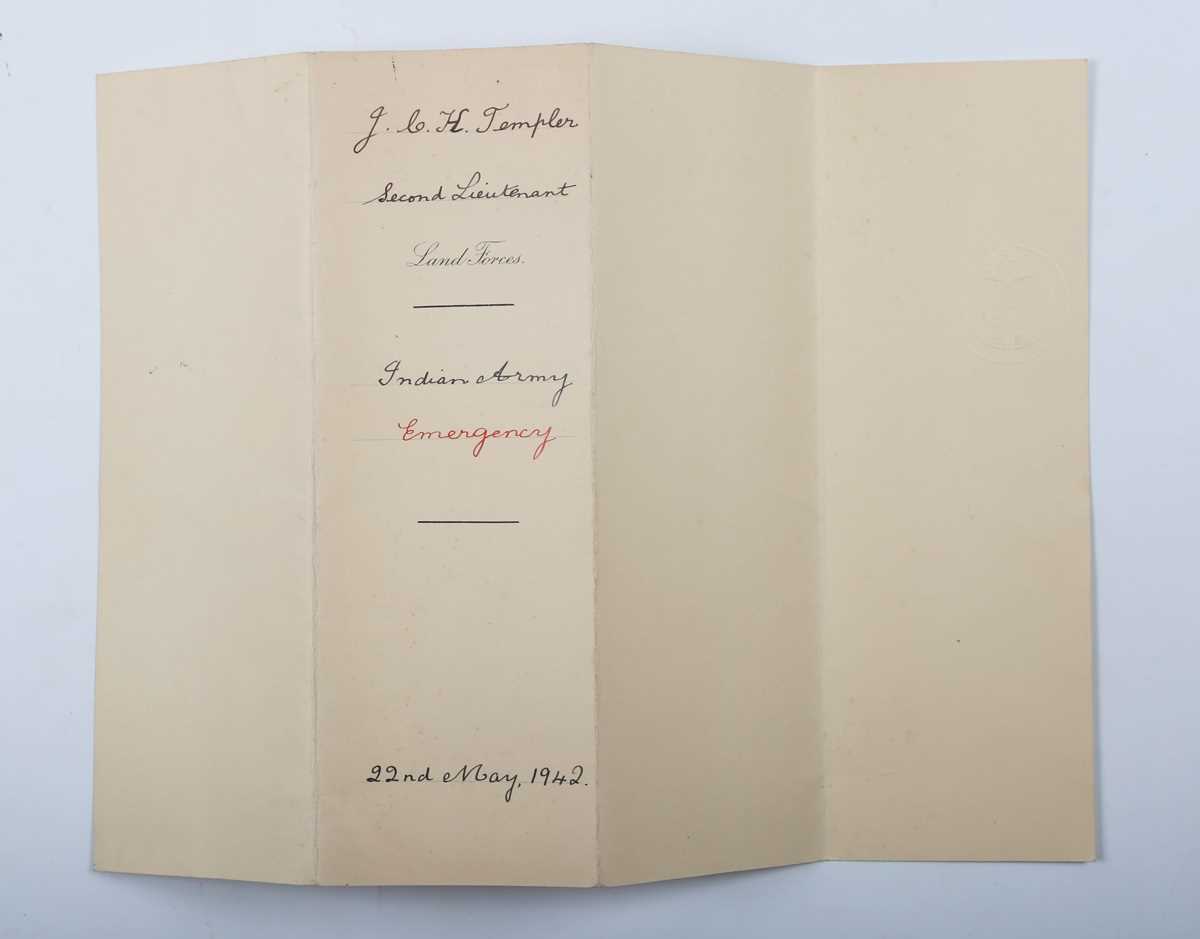 J. C. H. Templer
Second Lieutenant
Land Forces.
Indian Army
Emergency
22nd May, 1942.